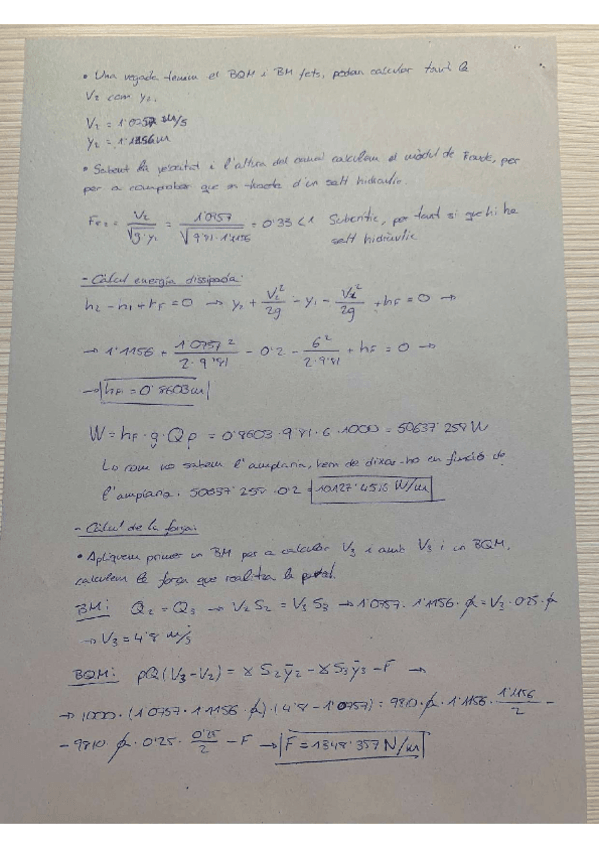 • Una vegada tenim el BQM i BM fets, podem calcular tant la
V2 com y2.
V2 = 1'0757 m/s
y2 = 1'1156 m
• Sabent la velocitat i l'altura del canal calculem el mòdul de Froude, per
per a comprobar que es tracta d'un salt hidràulic.
Fr2 = V2/√(g·y2) = 1'0757/√(9'81·1'1156) = 0'33 < 1 Subcrític, per tant si que hi ha
salt hidràulic
- Càlcul energía dissipada:
h2 - h1 + hF = 0 → y2 + V2²/2g - y1 - V1²/2g + hF = 0 →
→ 1'1156 + 1'0757²/2·9'81 - 0'2 - 6²/2·9'81 + hF = 0 →
→ hF = 0'8603 m
W = hF · g · Q ρ = 0'8603 · 9'81 · 6 · 1000 = 50637'258 W
no sabem l'amplaria, hem de dixar-ho en funció de
l'amplaria. 50637'258 · 0'2 = 10127'4516 W/m
- Càlcul de la força:
• Apliquem primer un BM per a calcular V3 i amb V3 i un BQM,
calculem la força que realitza la
BM: Q2 = Q3 → V2 S2 = V3 S3 → 1'0757 · 1'1156 · a = V3 · 0'25 · a
→ V3 = 4'8 m/s
BQM: ρQ(V3 - V2) = γ S2 ȳ2 - γ S3 ȳ3 - F →
→ 1000 · (1'0757 · 1'1156 · a) · (4'8 - 1'0757) = 9810 · a · 1'1156 · 1'1156/2 -
- 9810 · a · 0'25 · 0'25/2 - F → F = 1348'357 N/m